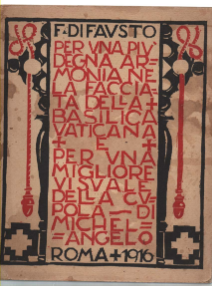 F. DI FAUSTO
PER VNA PIV
DEGNA AR=
MONIA NE
LA FACCIA=
TA DELLA +
BASILICA
VATICANA +
+ E +
PER VNA
MIGLIORE
VISVALE
DELLA CV=
POLA — DI
MICHEL=
=ANGELO=
ROMA + 1916